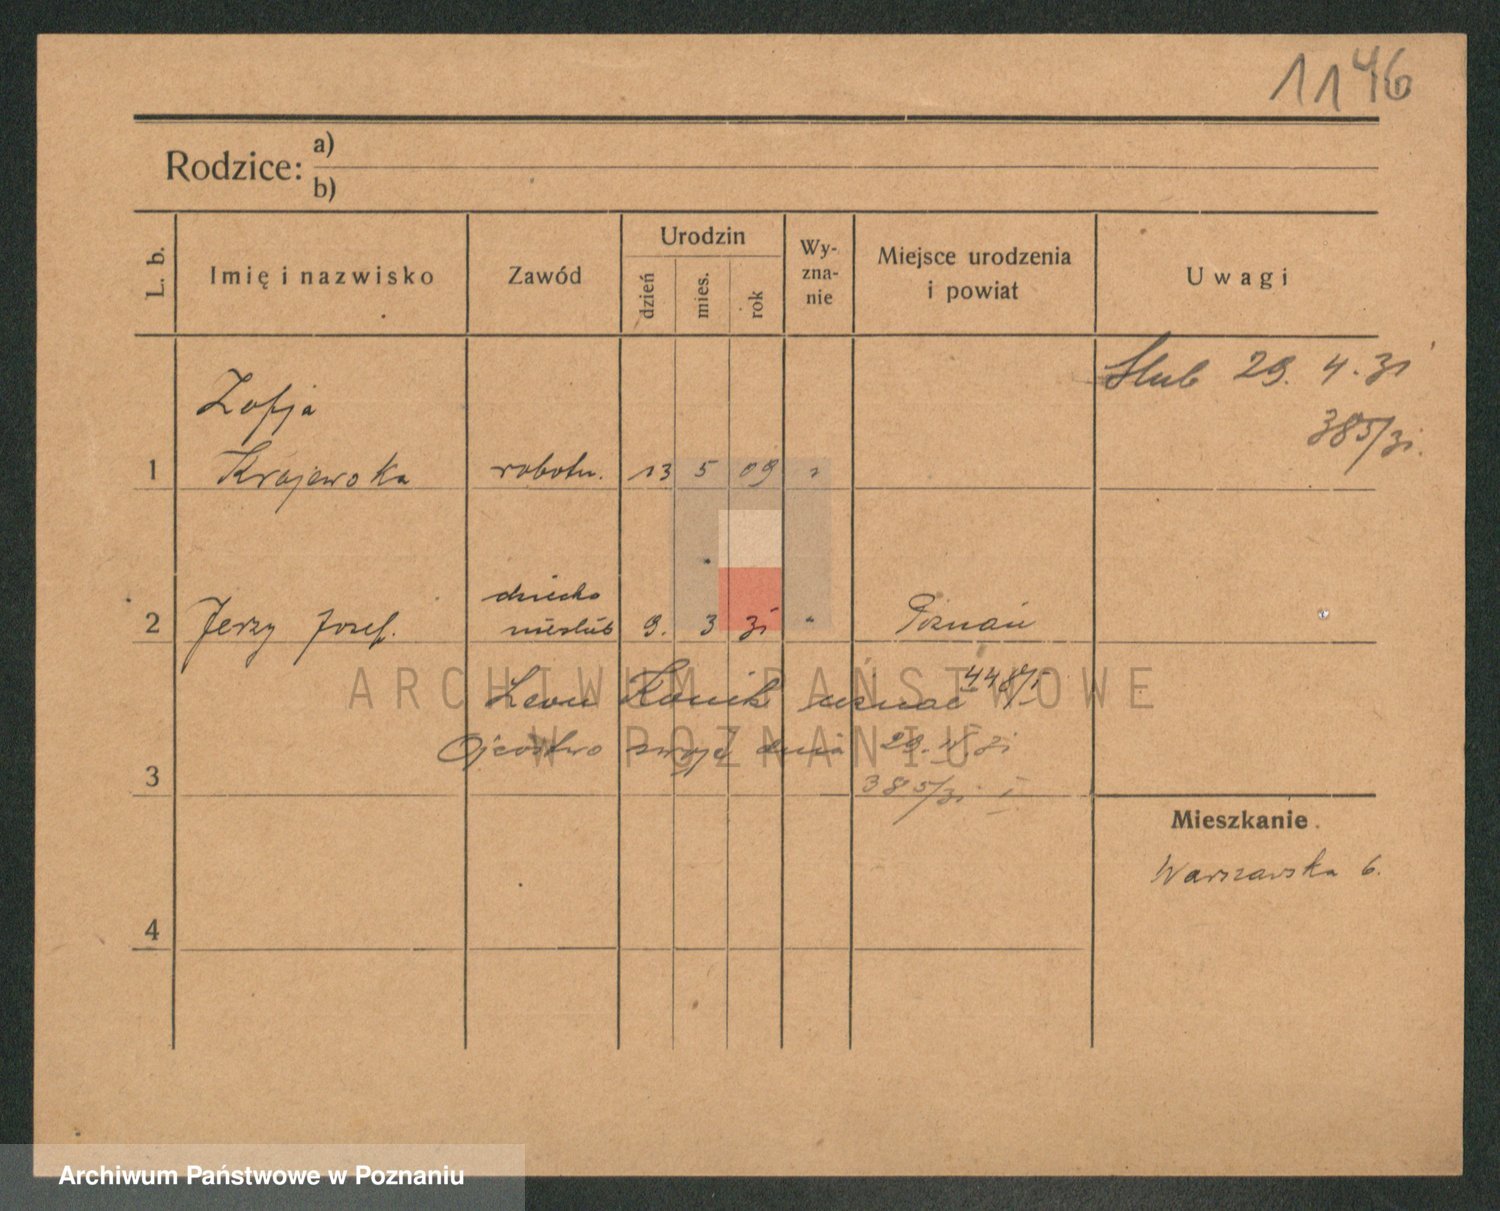 1146
Rodzice: a)
b)
L. b.
Imię i nazwisko
Zawód
Urodzin
dzień
mies.
rok
Wy-
zna-
nie
Miejsce urodzenia
i powiat
Uwagi
Ślub 29. 4. 31
385/31.
Zofja
1 Krajewska robotn. 13 5 09
dziecko
2 Jerzy Józef. nieślub 9. 3 31 " Poznań
448/I
Leon Konik uznać
Ojcostwo swoje dnia 29. IV 31
3 385/31 I
Mieszkanie
Warszawska 6.
4
ARCHIWUM PAŃSTWOWE
W POZNANIU
Archiwum Państwowe w Poznaniu